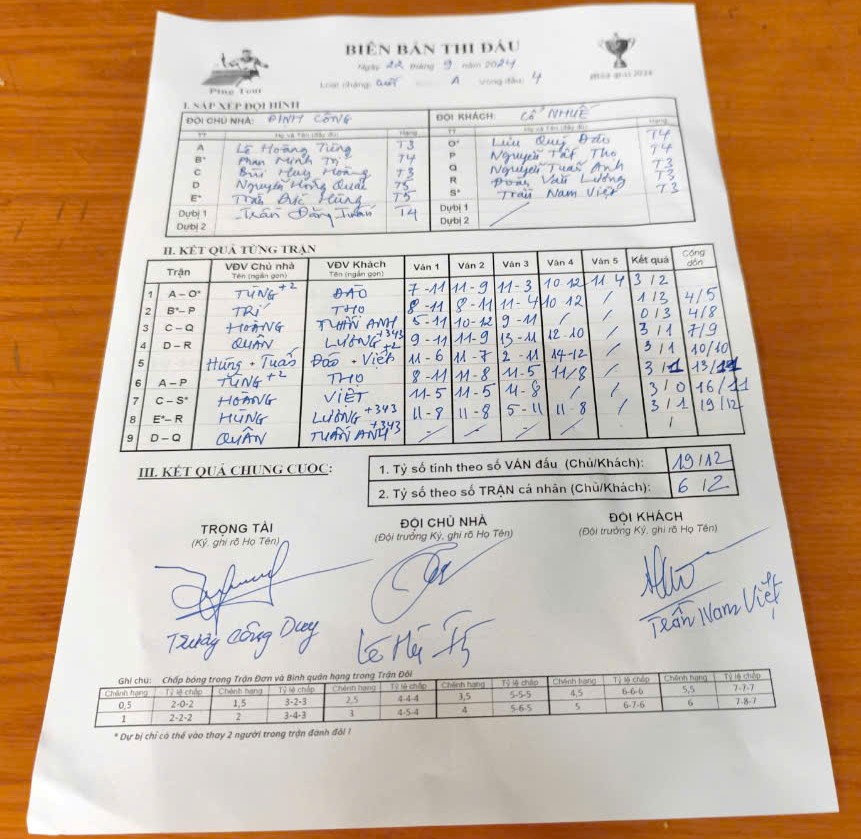 BIÊN BẢN THI ĐẤU
Ngày 22 tháng 9 năm 2024
Ping Tour
A Vòng đấu: 4
I. SẮP XẾP ĐỘI HÌNH
ĐỘI CHỦ NHÀ: ĐỊNH CÔNG ĐỘI KHÁCH: CỔ NHUẾ
TT Họ và Tên (đầy đủ) Hạng TT Họ và Tên (đầy đủ) Hạng
A Lê Hoàng Tùng T3 O* Lưu Quý Đào T4
B* Phan Minh Trí T4 P Nguyễn Tất Thọ T4
C Bùi Huy Hoàng T3 Q Nguyễn Tuấn Anh T3
D Nguyễn Hồng Quân T5 R Đoàn Văn Lương T3
E* Trần Đức Hùng T5 S* Trần Nam Việt T3
Dự bị 1 Trần Đăng Tuấn T4 Dự bị 1
Dự bị 2 Dự bị 2
II. KẾT QUẢ TỪNG TRẬN
Trận VĐV Chủ nhà VĐV Khách Ván 1 Ván 2 Ván 3 Ván 4 Ván 5 Kết quả Cộng dồn
Tên (ngắn gọn) Tên (ngắn gọn)
1 A – O* TÙNG +2 ĐÀO 7-11 11-9 11-3 10-12 11-4 3/2
2 B* – P TRÍ THỌ 8-11 8-11 11-4 10-12 / 1/3 4/5
3 C – Q HOÀNG TUẤN ANH 5-11 10-12 9-11 / / 0/3 4/8
4 D – R QUÂN LƯƠNG +343 9-11 11-9 13-11 12-10 / 3/1 7/9
5 Hùng + Tuấn Đào + Việt +2 11-6 11-7 2-11 14-12 / 3/1 10/10
6 A – P TÙNG +2 THỌ 8-11 11-8 11-5 11/8 / 3/1 13/11
7 C – S* HOÀNG VIỆT 11-5 11-5 11-8 / / 3/0 16/11
8 E* – R HÙNG LƯƠNG +343 11-8 11-8 5-11 11-8 / 3/1 19/12
9 D – Q QUÂN TUẤN ANH +343 / / / / /
III. KẾT QUẢ CHUNG CUỘC:
1. Tỷ số tính theo số VÁN đấu (Chủ/Khách): 19/12
2. Tỷ số theo số TRẬN cá nhân (Chủ/Khách): 6/2
TRỌNG TÀI ĐỘI CHỦ NHÀ ĐỘI KHÁCH
(Ký, ghi rõ Họ Tên) (Đội trưởng Ký, ghi rõ Họ Tên) (Đội trưởng Ký, ghi rõ Họ Tên)
Công Duy Trần Nam Việt
Ghi chú: Chấp bóng trong Trận Đơn và Bình quân hạng trong Trận Đôi
Chênh hạng Tỷ lệ chấp Chênh hạng Tỷ lệ chấp Chênh hạng Tỷ lệ chấp Chênh hạng Tỷ lệ chấp Chênh hạng Tỷ lệ chấp Chênh hạng Tỷ lệ chấp
0,5 2-0-2 1,5 3-2-3 2,5 4-4-4 3,5 5-5-5 4,5 6-6-6 5,5 7-7-7
1 2-2-2 2 3-4-3 3 4-5-4 4 5-6-5 5 6-7-6 6 7-8-7
* Dự bị chỉ có thể vào thay 2 người trong trận đánh đôi !